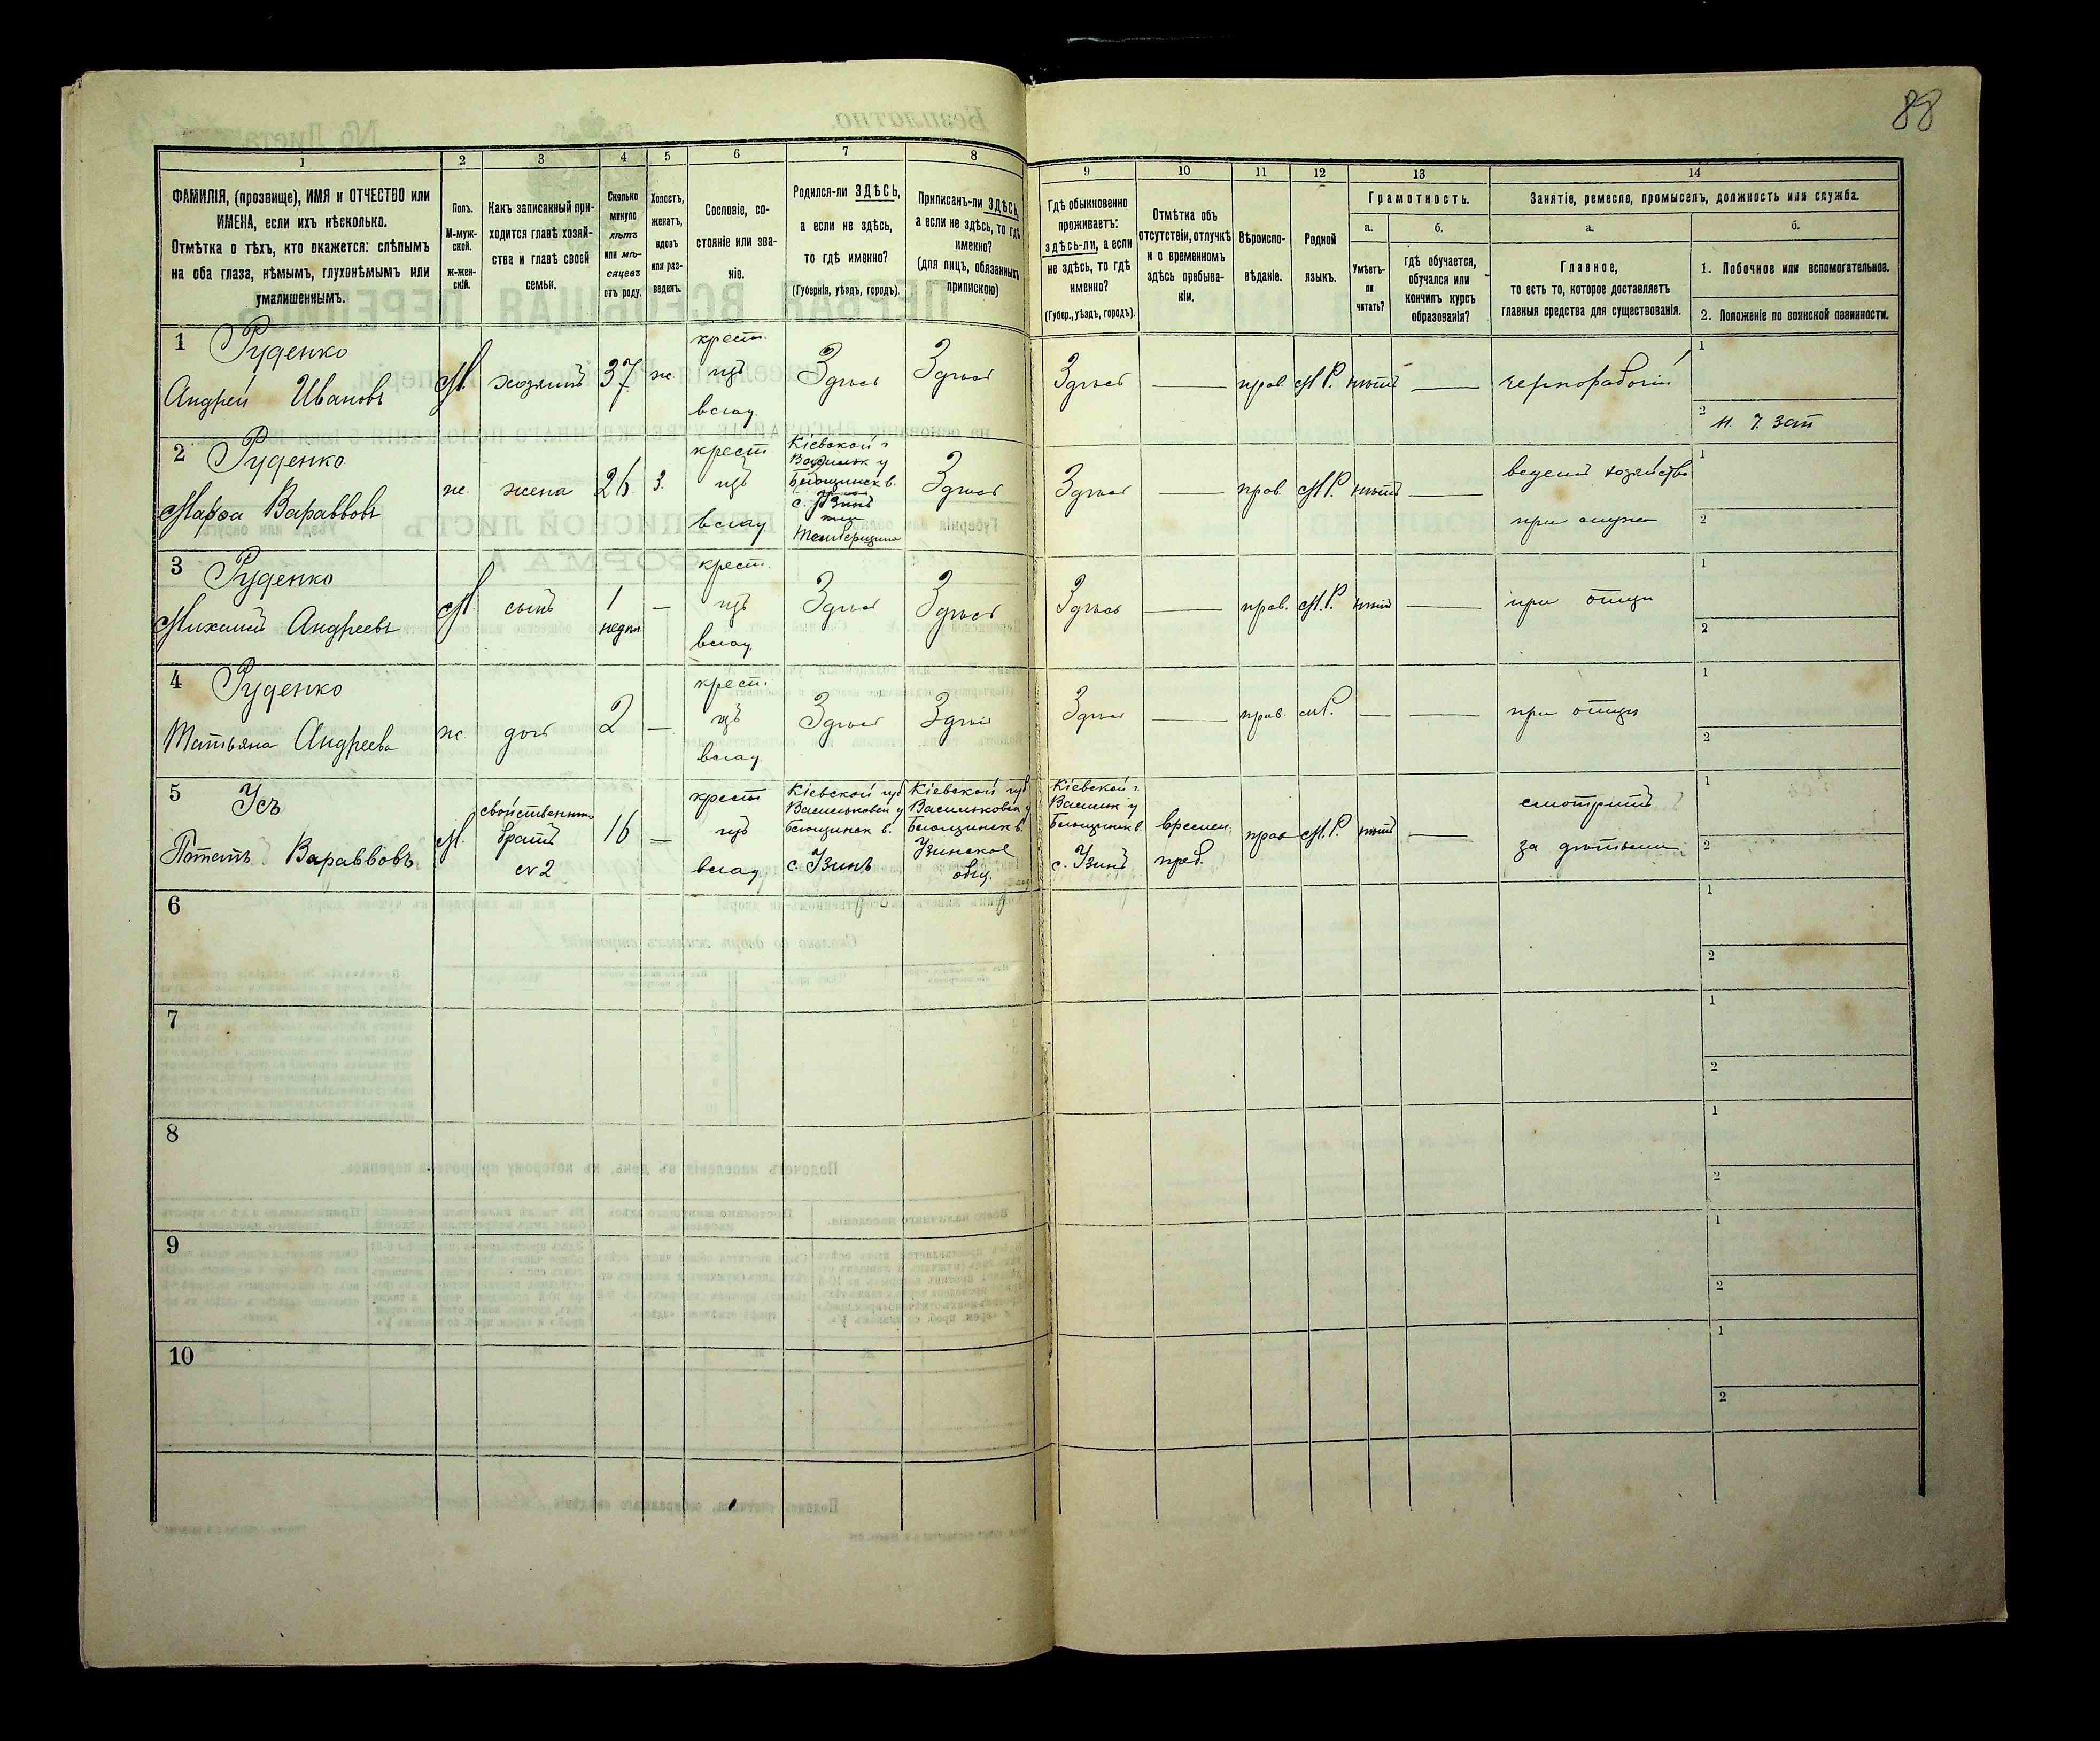 88
1 2 3 4 5 6 7 8 9 10 11 12 13 14
ФАМИЛІЯ, (прозвище), ИМЯ и ОТЧЕСТВО или
ИМЕНА, если ихъ нѣсколько.
Отмѣтка о тѣхъ, кто окажется: слѣпымъ
на оба глаза, нѣмымъ, глухонѣмымъ или
умалишеннымъ.
Полъ.
М-муж-
ской.
ж-жен-
скій.
Какъ записанный при-
ходится главѣ хозяй-
ства и главѣ своей
семьи.
Сколько
минуло
лѣтъ
или мѣ-
сяцевъ
отъ роду.
Холостъ,
женатъ,
вдовъ
или раз-
веденъ.
Сословіе, со-
стояніе или зва-
ніе.
Родился-ли ЗДѢСЬ,
а если не здѣсь,
то гдѣ именно?
(Губернія, уѣздъ, городъ).
Приписанъ-ли ЗДѢСЬ,
а если не здѣсь, то гдѣ
именно?
(для лицъ, обязанныхъ
припискою)
Гдѣ обыкновенно
проживаетъ:
здѣсь-ли, а если
не здѣсь, то гдѣ
именно?
(Губер., уѣздъ, городъ).
Отмѣтка объ
отсутствіи, отлучкѣ
и о временномъ
здѣсь пребыва-
ніи.
Вѣроиспо-
вѣданіе.
Родной
языкъ.
Грамотность.
а.
Умѣетъ-
ли
читать?
б.
гдѣ обучается,
обучался или
кончилъ курсъ
образованія?
Занятіе, ремесло, промыселъ, должность или служба.
а.
Главное,
то есть то, которое доставляетъ
главныя средства для существованія.
б.
1. Побочное или вспомогательное.
2. Положеніе по воинской повинности.
1 Руденко
Андрей Ивановъ
М.
хозяинъ
37
ж.
крест.
изъ
влад.
Здѣсь
Здѣсь
Здѣсь
—
прав.
М.Р.
нѣтъ
—
чернорабочій
1
2
2 Руденко
Марѳа Вараввовъ
ж.
жена
26
З.
крест
изъ
влад
Кіевской г
Васильк у
Здѣсь
Здѣсь
—
прав.
М.Р.
нѣтъ
—
ведетъ хозяйство
при мужѣ
1
2
3 Руденко
Михаилъ Андреевъ
М
сынъ
1
недѣл
—
крест.
изъ
влад
Здѣсь
Здѣсь
Здѣсь
—
прав.
М.Р.
нѣтъ
—
при отцѣ
1
2
4 Руденко
Татьяна Андреева
ж.
дочь
2
—
крест.
изъ
влад.
Здѣсь
Здѣсь
Здѣсь
—
прав.
М.Р.
—
—
при отцѣ
1
2
5 Усъ
Потапъ Вараввовъ
М.
братъ
№ 2
16
—
крест
изъ
влад
Кіевской губ
Васильковск у
с. Узинъ
Кіевской губ
Васильковск у
Узинское
общ.
Кіевской г.
Васильк у
с. Узинъ
времен.
преб.
прав
М.Р.
нѣтъ
—
смотритъ
за дѣтьми
1
2
6
1
2
7
1
2
8
1
2
9
1
2
10
1
2